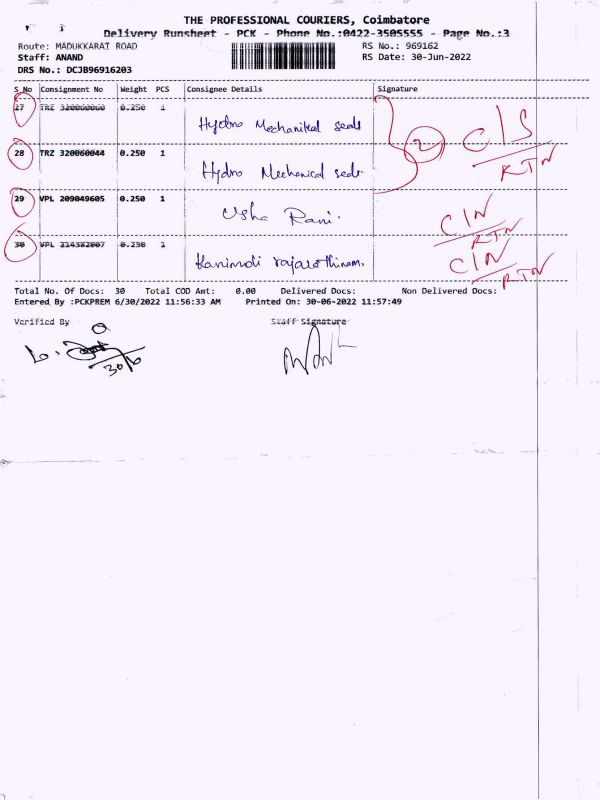 THE PROFESSIONAL COURIERS, Coimbatore
Delivery Runsheet - PCK - Phone No.:0422-3505555 - Page No.:3
Route: MADUKKARAI ROAD RS No.: 969162
Staff: ANAND RS Date: 30-Jun-2022
DRS No.: DCJB96916203
S_No Consignment No Weight PCS Consignee Details Signature
27 TRZ 0.250 1
Hydro Mechanikal seals
2 C/S
RTN
28 TRZ 320060044 0.250 1
Hydro Mechanical seals
29 VPL 209049605 0.250 1
Usha Rani.
C/N
RTN
30 VPL 214382007 0.250 1
Kanimoli rajarathinam.
C/N
RTN
Total No. Of Docs: 30 Total COD Amt: 0.00 Delivered Docs: Non Delivered Docs:
Entered By :PCKPREM 6/30/2022 11:56:33 AM Printed On: 30-06-2022 11:57:49
Verified By Staff Signature
30/6